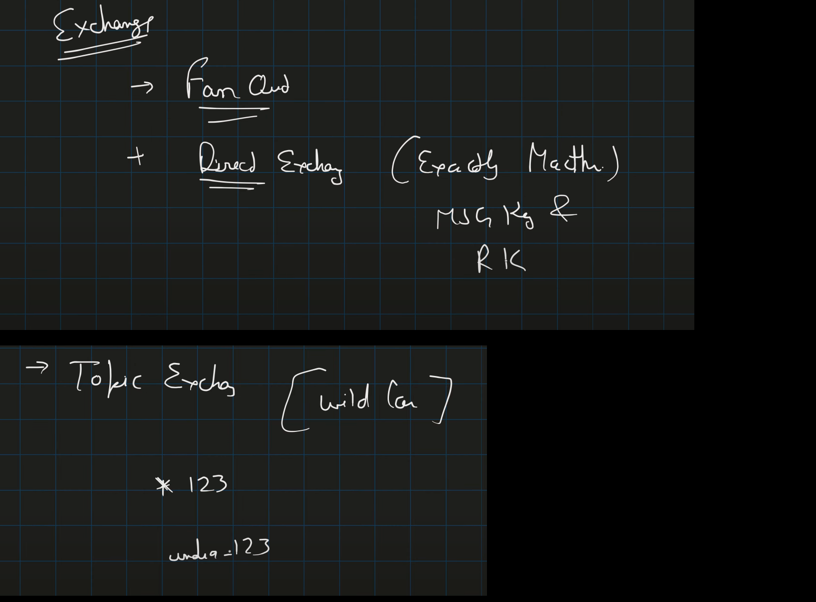 Exchange
→ Fan Out
+ Direct Exchang (Exactly Matchn.)
MSG Key &
RK
→ Topic Exchag [wild Car]
* 123
-123